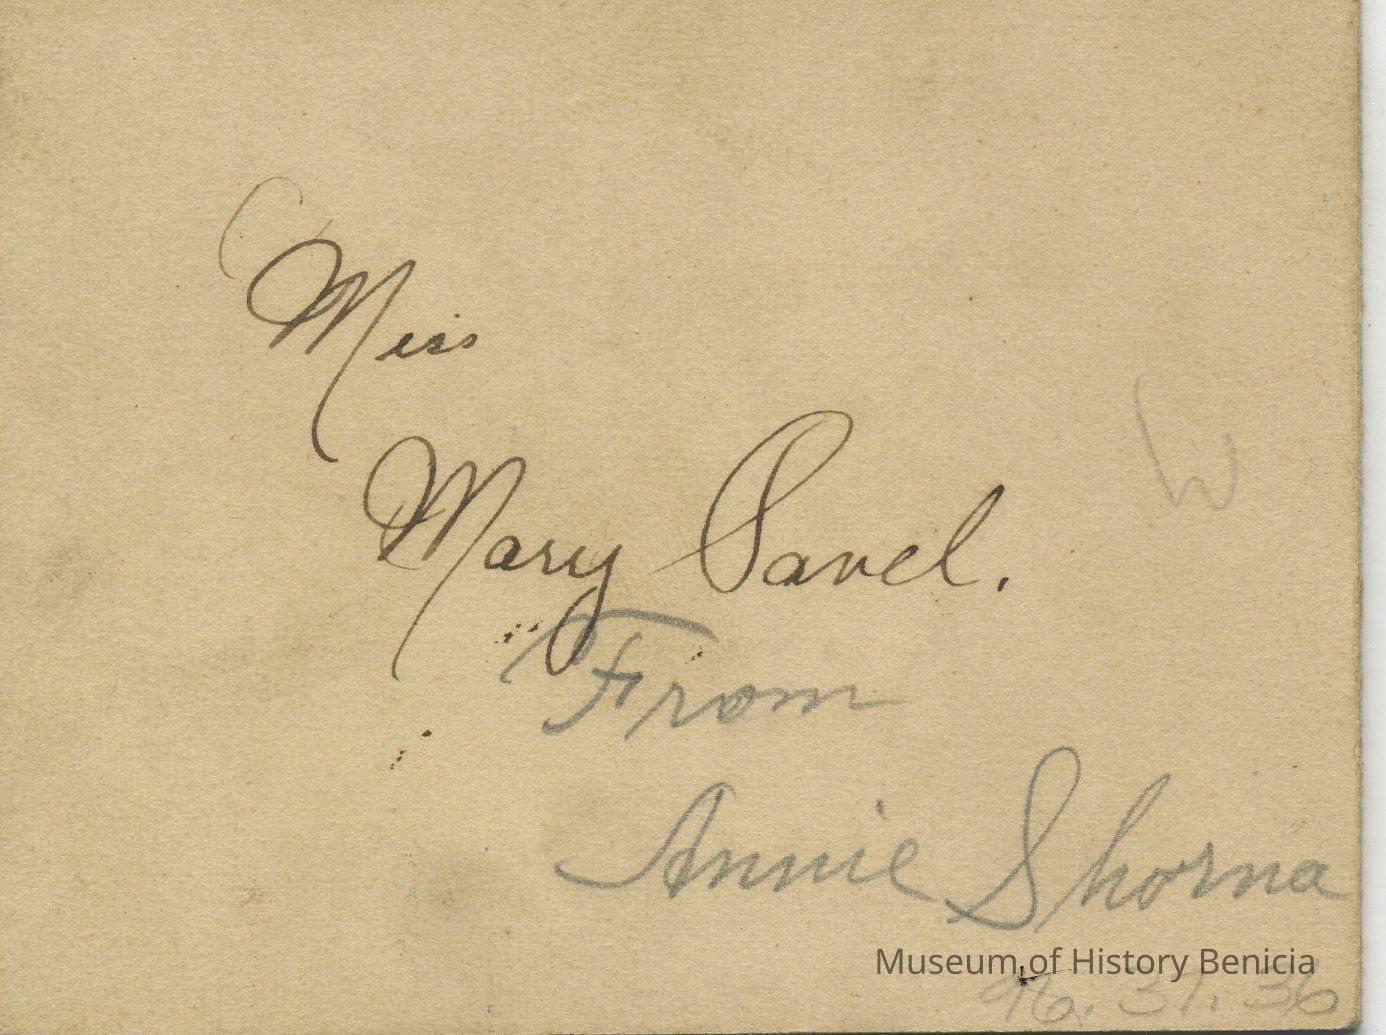 Miss
Mary Pavel.
W
From
Annie Shorna
Museum of History Benicia
96.37.36